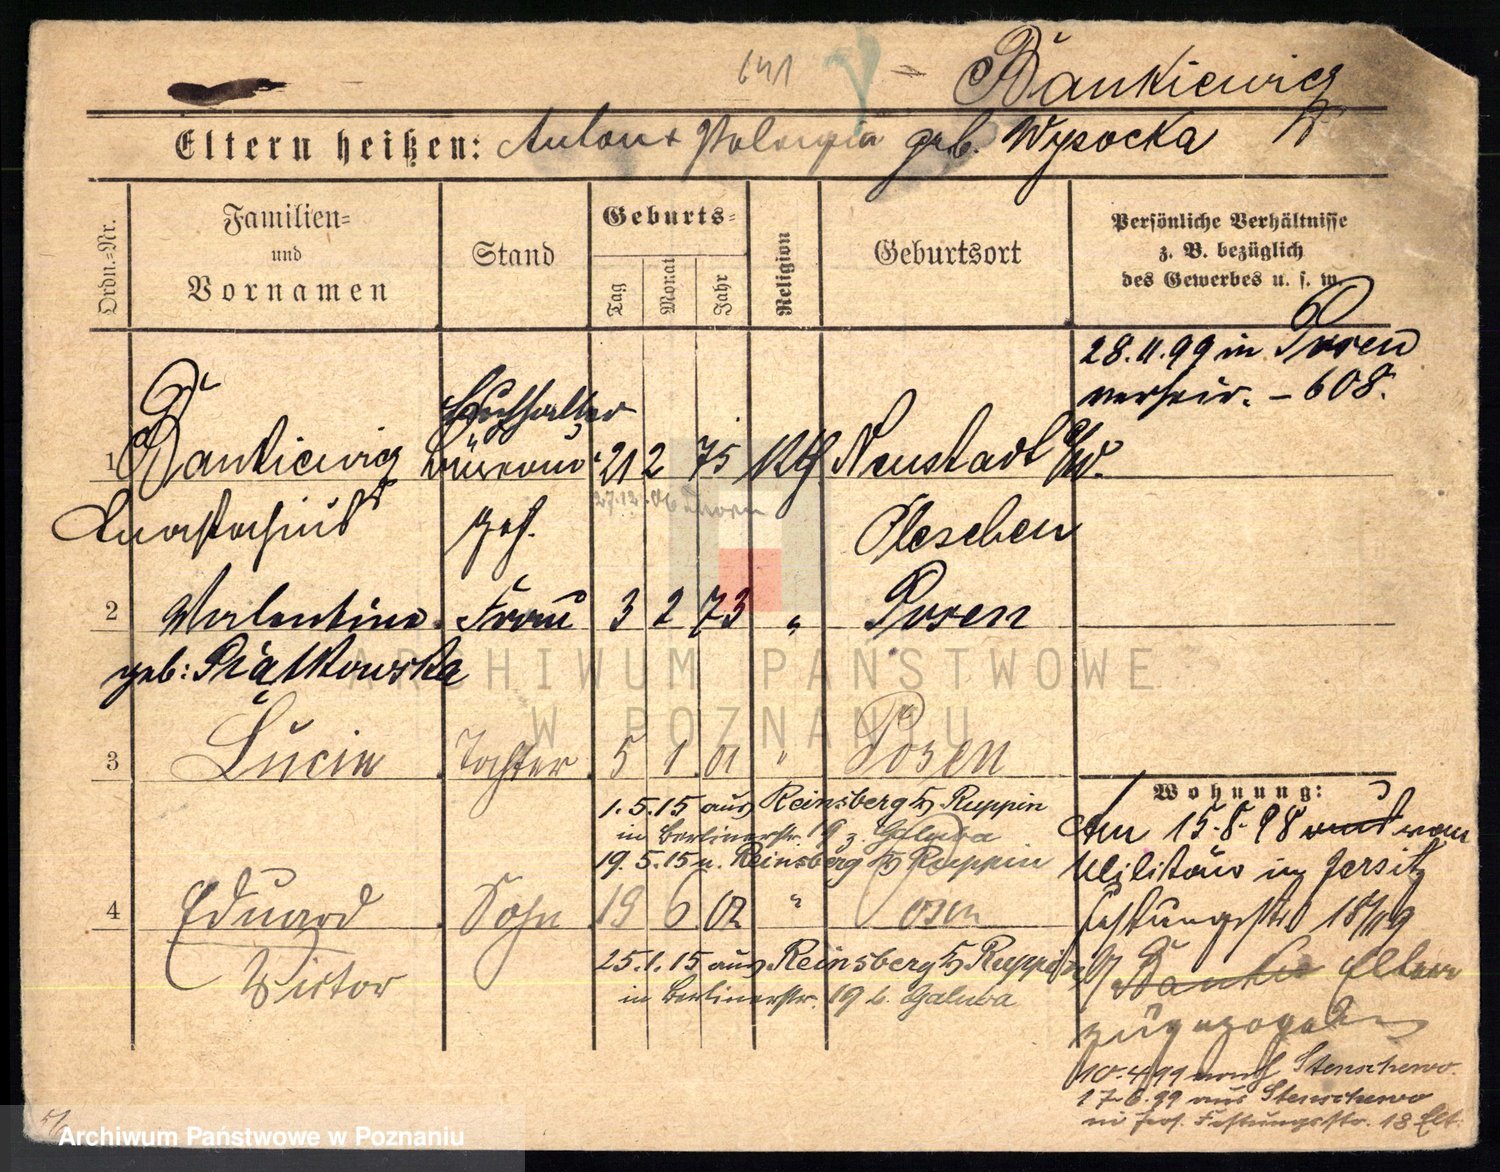 641
Bańkiewicz
Eltern heißen: Anton + Pelagia geb. Wysocka
Ordn.-Nr.
Familien-
und
Vornamen
Stand
Geburts-
Tag
Monat
Jahr
Religion
Geburtsort
Persönliche Verhältnisse
z. B. bezüglich
des Gewerbes u. s. w.
28.11.99 in Posen
verheir. – 608.
Buchhalter
1 Bańkiewicz 21 2 75 kth Neustadt a/W.
Anastasius geh. 27.12.06 Pleschen
2 Valentine Frau 3 2 73 " Posen
geb: Piątkowska
3 Lucie Tochter 5 1 01 " Posen
1.5.15 aus Reinsberg Ruppin
in Berlinerstr. 19 z. Galuba
19.5.15 n. Reinsberg Ruppin
4 Eduard Sohn 19 6 02 " Posen
Victor
25.1.15 aus Reinsberg Ruppin
in Berlinerstr. 19 b. Galuba
Wohnung:
Am 15.8.98 vom
Militär in Jersitz
Festungsstr 18/19
b/ Eltern
zugezogen
10.4.99 nach Stenschewo
17.6.99 aus Stenschewo
in Jers. Festungsstr. 18 Elt.
ARCHIWUM PAŃSTWOWE
W POZNANIU
Archiwum Państwowe w Poznaniu